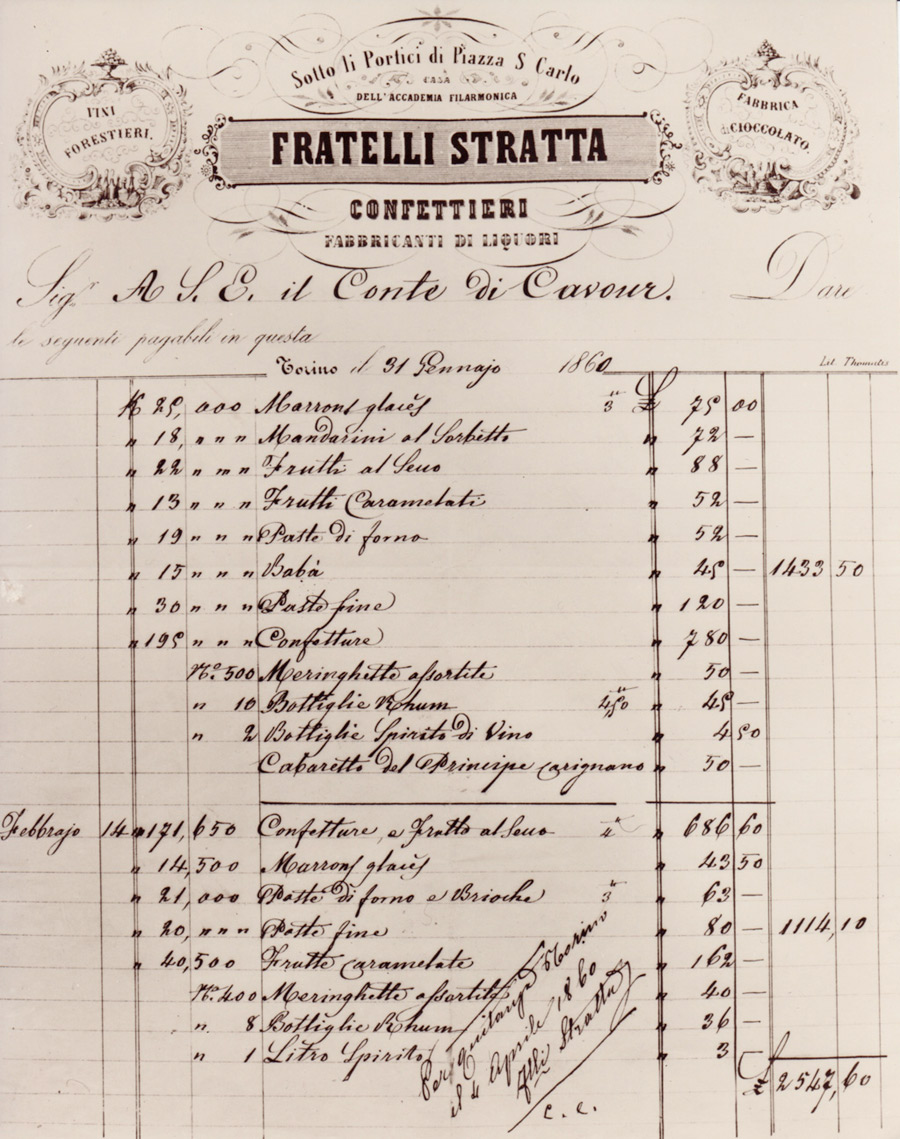 Sotto li Portici di Piazza S Carlo
CASA
DELL'ACCADEMIA FILARMONICA
VINI
FORESTIERI.
FABBRICA
di CIOCCOLATO.
FRATELLI STRATTA
CONFETTIERI
FABBRICANTI DI LIQUORI
Sigr A S. E. il Conte di Cavour. Dare
le seguenti pagabili in questa
Torino il 31 Gennajo 1860
Lit. Thomatis
K 25, 000 Marrons glacès 3" £ 75 00
" 18, " " " Mandarini al Sorbetto " 72 —
" 22 " " " Frutti al Seuo " 88 —
" 13 " " " Frutti Caramelati " 52 —
" 19 " " " Paste di forno " 52 —
" 15 " " " Babà " 45 — 1433 50
" 30 " " " Paste fine " 120 —
" 195 " " " Confetture " 780 —
N.o 500 Meringhette assortite " 50 —
" 10 Bottiglie Rhum 4 50 " 45 —
" 2 Bottiglie Spirito di Vino " 4 50
Cabaretto del Principe Carignano " 50 —
Febbrajo 14 " 171, 650 Confetture, e Frutto al Seuo 4" " 686 60
" 14,500 Marrons glacès " 43 50
" 21, 000 Paste di forno e Brioche 3" " 63 —
" 20, " " " Paste fine " 80 — 1114,10
" 40,500 Frutte caramelate " 162 —
N.o 400 Meringhette assortite " 40 —
" 8 Bottiglie Rhum " 36 —
" 1 Litro Spirito " 3
£ 2547,60
Per quitanza Torino
il 4 Aprile 1860
Flli Stratta
C. C.